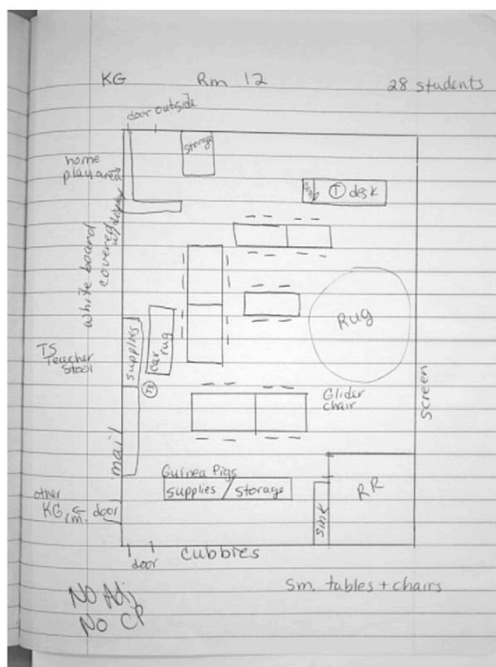 KG Rm 12 28 students
door outside
storage
home
play area
T desk
white board
covered w/display
Rug
supplies
car
rug
TS
Teacher
Stool
TS
Glider
chair
Screen
mail
Guinea Pigs
supplies / storage
RR
sink
other
KG rm. ← door
door
Cubbies
Sm. tables + chairs
No Adj
No CP